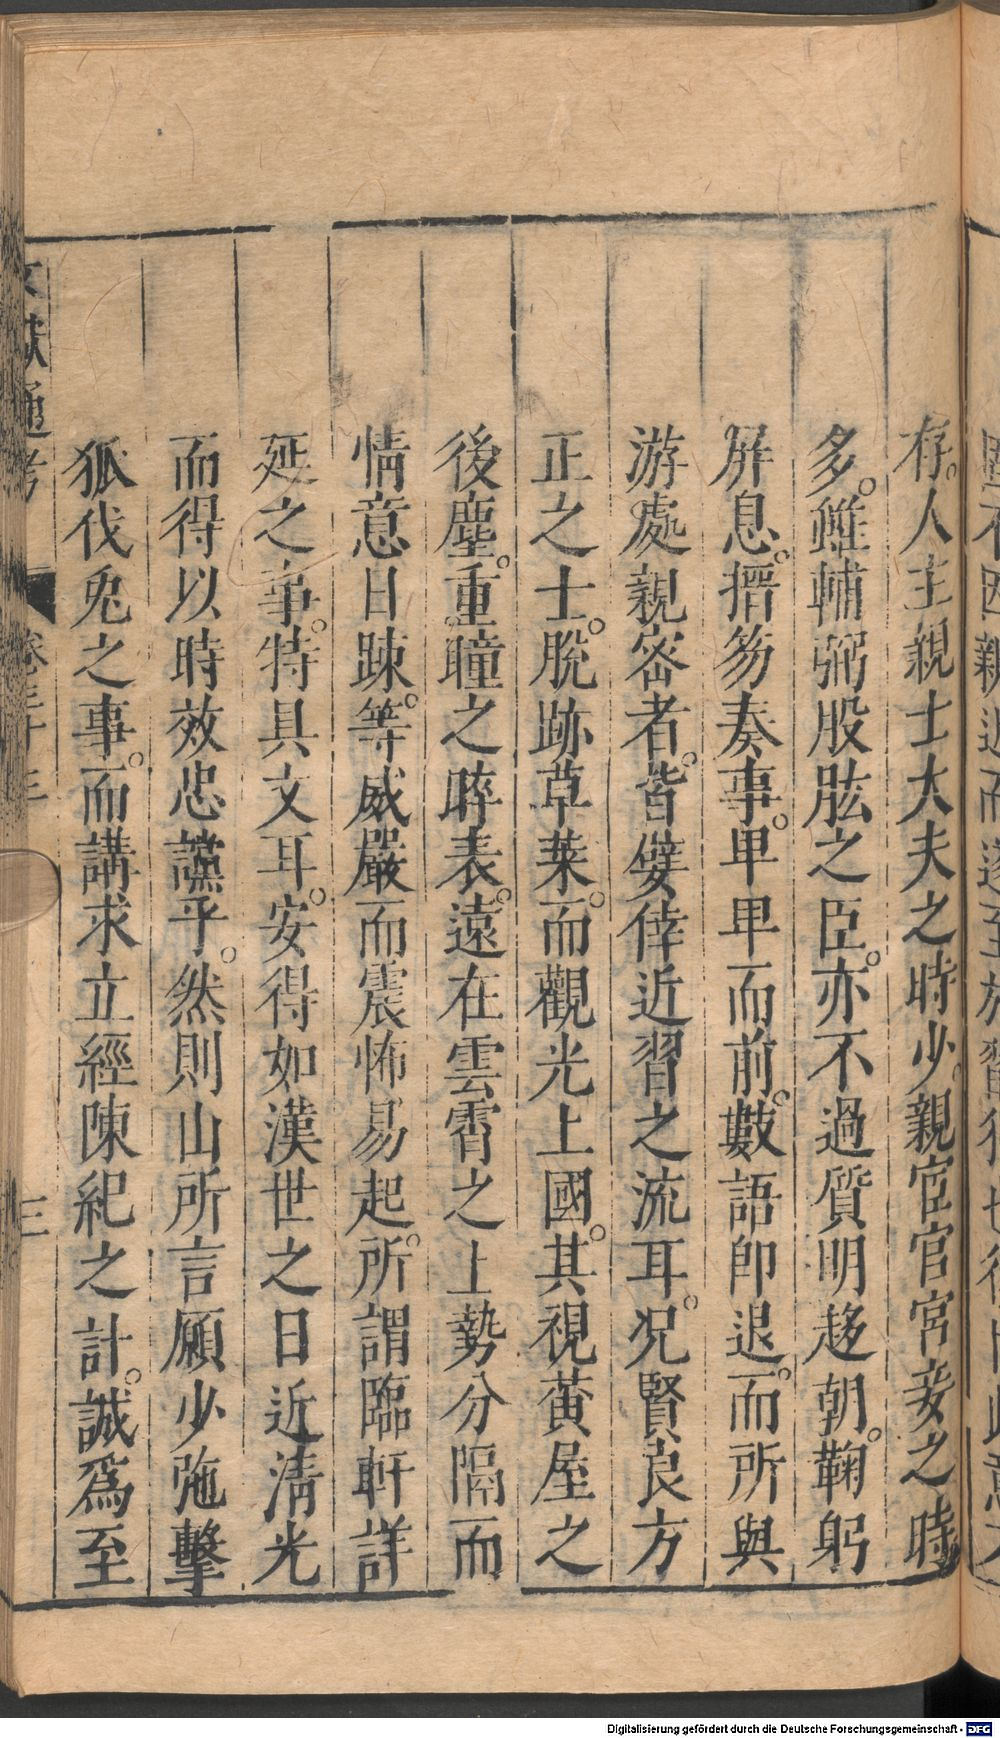 存。人主親士大夫之時少。親宦官宮妾之時
多。雖輔弼股肱之臣。亦不過質明趍朝。鞠躬
屏息。搢笏奏事。卑卑而前。數語卽退。而所與
游處親密者。皆嬖倖近習之流耳。况賢良方
正之士。脫跡草萊。而觀光上國。其視黃屋之
後塵。重瞳之睟表。遠在雲霄之上勢分隔而
情意日踈。等威嚴而震怖易起。所謂臨軒詳
延之事。特具文耳。安得如漢世之日近淸光
而得以時效忠讜乎。然則山所言願少弛擊
狐伐兎之事。而講求立經陳紀之計。誠爲至
文獻通考 卷三十三 三
Digitalisierung gefördert durch die Deutsche Forschungsgemeinschaft - DFG